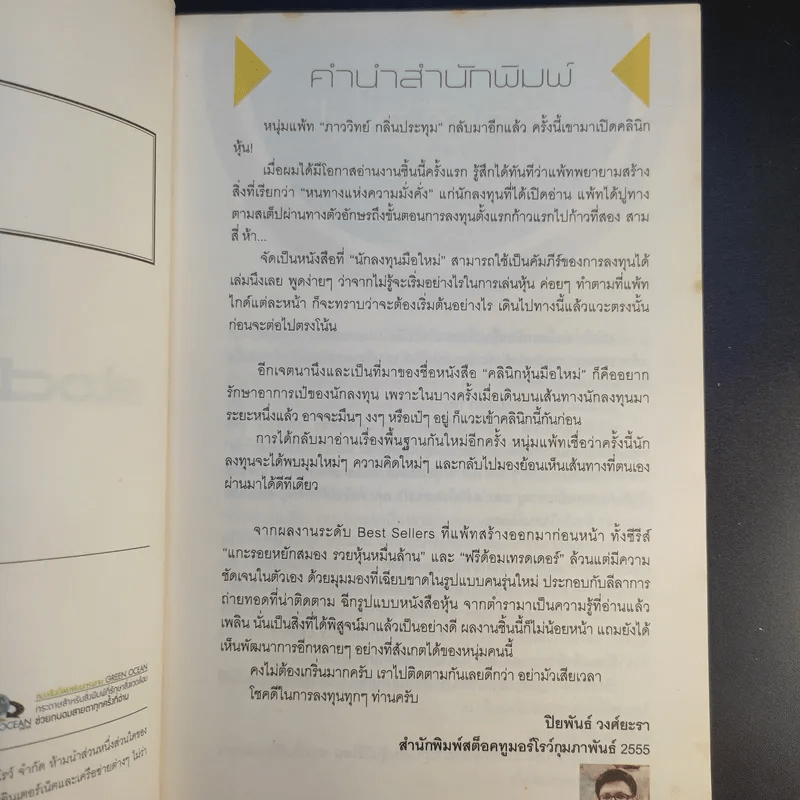 คำนำสำนักพิมพ์
หนุ่มแพ้ท "ภาววิทย์ กลิ่นประทุม" กลับมาอีกแล้ว ครั้งนี้เขามาเปิดคลินิก
หุ้น!
เมื่อผมได้มีโอกาสอ่านงานชิ้นนี้ครั้งแรก รู้สึกได้ทันทีว่าแพ้ทพยายามสร้าง
สิ่งที่เรียกว่า "หนทางแห่งความมั่งคั่ง" แก่นักลงทุนที่ได้เปิดอ่าน แพ้ทได้ปูทาง
ตามสเต็ปผ่านทางตัวอักษรถึงขั้นตอนการลงทุนตั้งแรกก้าวแรกไปก้าวที่สอง สาม
สี่ ห้า...
จัดเป็นหนังสือที่ "นักลงทุนมือใหม่" สามารถใช้เป็นคัมภีร์ของการลงทุนได้
เล่มนึงเลย พูดง่ายๆ ว่าจากไม่รู้จะเริ่มอย่างไรในการเล่นหุ้น ค่อยๆ ทำตามที่แพ้ท
ไกด์แต่ละหน้า ก็จะทราบว่าจะต้องเริ่มต้นอย่างไร เดินไปทางนี้แล้วแวะตรงนั้น
ก่อนจะต่อไปตรงโน้น
อีกเจตนานึงและเป็นที่มาของชื่อหนังสือ "คลินิกหุ้นมือใหม่" ก็คืออยาก
รักษาอาการเป๋ของนักลงทุน เพราะในบางครั้งเมื่อเดินบนเส้นทางนักลงทุนมา
ระยะหนึ่งแล้ว อาจจะมึนๆ งงๆ หรือเป๋ๆ อยู่ ก็แวะเข้าคลินิกนี้กันก่อน
การได้กลับมาอ่านเรื่องพื้นฐานกันใหม่อีกครั้ง หนุ่มแพ้ทเชื่อว่าครั้งนี้นัก
ลงทุนจะได้พบมุมใหม่ๆ ความคิดใหม่ๆ และกลับไปมองย้อนเห็นเส้นทางที่ตนเอง
ผ่านมาได้ดีทีเดียว
จากผลงานระดับ Best Sellers ที่แพ้ทสร้างออกมาก่อนหน้า ทั้งซีรีส์
"แกะรอยหยักสมอง รวยหุ้นหมื่นล้าน" และ "ฟรีด้อมเทรดเดอร์" ล้วนแต่มีความ
ชัดเจนในตัวเอง ด้วยมุมมองที่เฉียบขาดในรูปแบบคนรุ่นใหม่ ประกอบกับลีลาการ
ถ่ายทอดที่น่าติดตาม ฉีกรูปแบบหนังสือหุ้น จากตำรามาเป็นความรู้ที่อ่านแล้ว
เพลิน นั่นเป็นสิ่งที่ได้พิสูจน์มาแล้วเป็นอย่างดี ผลงานชิ้นนี้ก็ไม่น้อยหน้า แถมยังได้
เห็นพัฒนาการอีกหลายๆ อย่างที่สังเกตได้ของหนุ่มคนนี้
คงไม่ต้องเกริ่นมากครับ เราไปติดตามกันเลยดีกว่า อย่ามัวเสียเวลา
โชคดีในการลงทุนทุกๆ ท่านครับ
ปิยพันธ์ วงศ์ยะรา
สำนักพิมพ์สต็อคทูมอร์โรว์กุมภาพันธ์ 2555
GREEN OCEAN
กระดาษสำหรับสิ่งพิมพ์ที่รักษาสิ่งแวดล้อม
ช่วยถนอมสายตาทุกครั้งที่อ่าน
OCEAN
โรว์ จำกัด ห้ามนำส่วนหนึ่งส่วนใดของ
อินเตอร์เน็ตและเครือข่ายต่างๆ ไม่ว่า